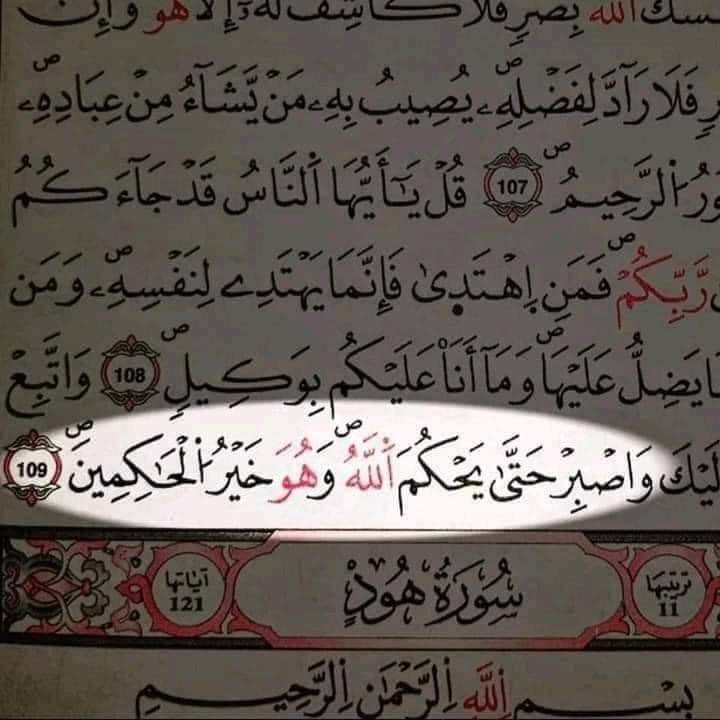 بِضُرٍّ فَلَا كَاشِفَ لَهُۥٓ إِلَّا هُوَ وَإِنْ
فَلَا رَآدَّ لِفَضْلِهِۦ يُصِيبُ بِهِۦ مَنْ يَّشَآءُ مِنْ عِبَادِهِۦ
اُ۬لرَّحِيمُ 107 قُلْ يَـٰٓأَيُّهَا اَ۬لنَّاسُ قَدْ جَآءَكُمُ
رَّبِّكُمْ فَمَنِ اِ۪هْتَد۪ىٰ فَإِنَّمَا يَهْتَدِے لِنَفْسِهِۦ وَمَن
يَضِلُّ عَلَيْهَا وَمَآ أَنَا۠ عَلَيْكُم بِوَكِيلٍ 108 وَاتَّبِعْ
وَاصْبِرْ حَتَّىٰ يَحْكُمَ اَ۬للَّهُ وَهُوَ خَيْرُ اُ۬لْحَـٰكِمِينَ 109
ترتيبها 11 سُورَةُ هُودٍ آياتها 121
بِسْمِ اِ۬للَّهِ اِ۬لرَّحْمَـٰنِ اِ۬لرَّحِيمِ